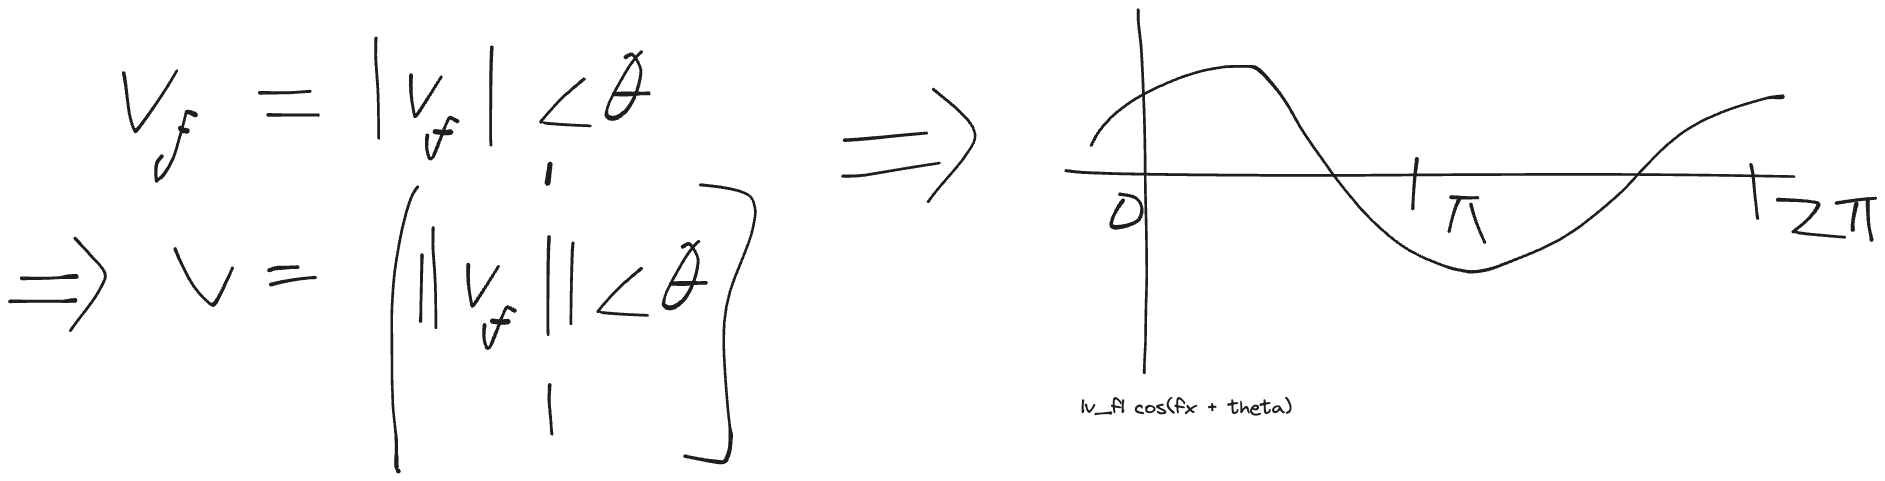 v_f = |v_f| ∠θ
⇒ v = [ | ‖v_f‖ ∠θ | ]
⇒
0 π 2π
|v_f| cos(fx + theta)